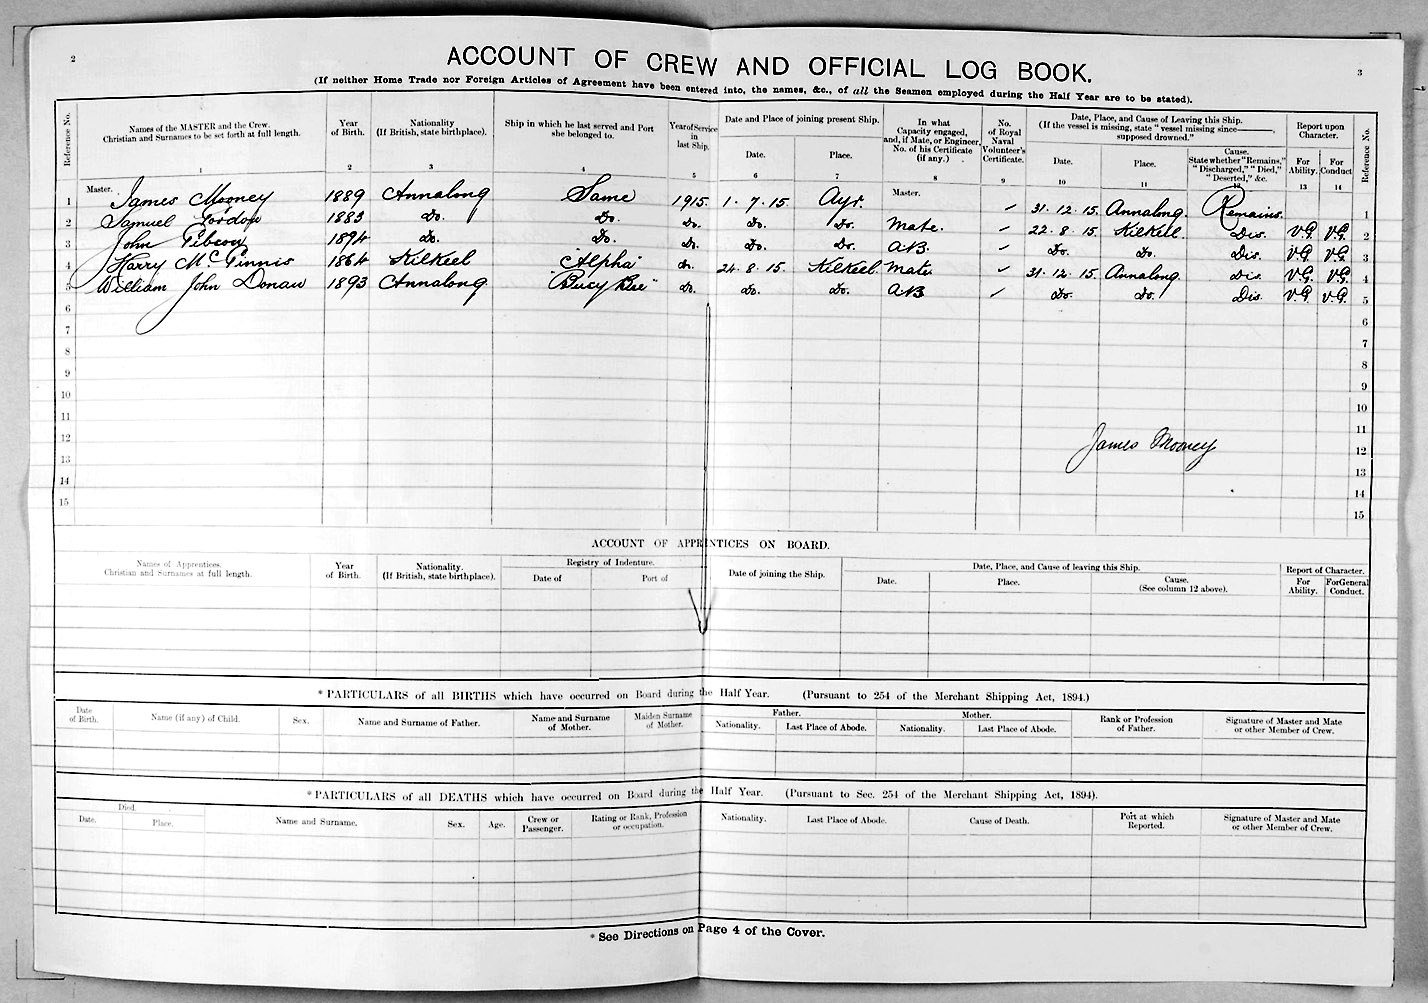 2
3
ACCOUNT OF CREW AND OFFICIAL LOG BOOK.
(If neither Home Trade nor Foreign Articles of Agreement have been entered into, the names, &c., of all the Seamen employed during the Half Year are to be stated).
Reference No.
Names of the MASTER and the Crew.
Christian and Surnames to be set forth at full length.
1
Year
of Birth.
2
Nationality
(If British, state birthplace).
3
Ship in which he last served and Port
she belonged to.
4
Year of Service
in
last Ship.
5
Date and Place of joining present Ship.
Date.
6
Place.
7
In what
Capacity engaged,
and, if Mate, or Engineer,
No. of his Certificate
(if any.)
8
No.
of Royal
Naval
Volunteer's
Certificate.
9
Date, Place, and Cause of Leaving this Ship.
(If the vessel is missing, state "vessel missing since———,
supposed drowned."
Date.
10
Place.
11
Cause.
State whether "Remains,"
"Discharged," "Died,"
"Deserted," &c.
12
Report upon
Character.
For
Ability.
13
For
Conduct
14
Reference No.
1 Master. James Mooney 1889 Annalong Same 1915. 1.7.15. Ayr. Master. 31.12.15. Annalong. Remains. 1
2 Samuel Gordon 1883 Do. Do. Do. Do. Do. Mate. 22.8.15. Kilkeel Dis. V.G. V.G. 2
3 John 1894 Do. Do. Do. Do. Do. A.B. Do. Do. Dis. V.G. V.G. 3
4 Harry McGinnis 1864 Kilkeel "Alpha" Do. 24.8.15. Kilkeel Mate 31.12.15. Annalong. Dis. V.G. V.G. 4
5 William John Donan 1893 Annalong "Percy Do. Do. Do. A.B Do. Do. Dis. V.G. V.G. 5
6 6
7 7
8 8
9 9
10 10
11 11
12 James Mooney 12
13 13
14 14
15 15
ACCOUNT OF APPRENTICES ON BOARD.
Names of Apprentices.
Christian and Surnames at full length.
Year
of Birth.
Nationality.
(If British, state birthplace).
Registry of Indenture.
Date of
Port of
Date of joining the Ship.
Date, Place, and Cause of leaving this Ship.
Date.
Place.
Cause.
(See column 12 above).
Report of Character.
For
Ability.
For General
Conduct.
* PARTICULARS of all BIRTHS which have occurred on Board during the Half Year. (Pursuant to 254 of the Merchant Shipping Act, 1894.)
Date
of Birth.
Name (if any) of Child.
Sex.
Name and Surname of Father.
Name and Surname
of Mother.
Maiden Surname
of Mother.
Father.
Nationality.
Last Place of Abode.
Mother.
Nationality.
Last Place of Abode.
Rank or Profession
of Father.
Signature of Master and Mate
or other Member of Crew.
* PARTICULARS of all DEATHS which have occurred on Board during the Half Year. (Pursuant to Sec. 254 of the Merchant Shipping Act, 1894).
Died.
Date.
Place.
Name and Surname.
Sex.
Age.
Crew or
Passenger.
Rating or Rank, Profession
or occupation.
Nationality.
Last Place of Abode.
Cause of Death.
Port at which
Reported.
Signature of Master and Mate
or other Member of Crew.
* See Directions on Page 4 of the Cover.